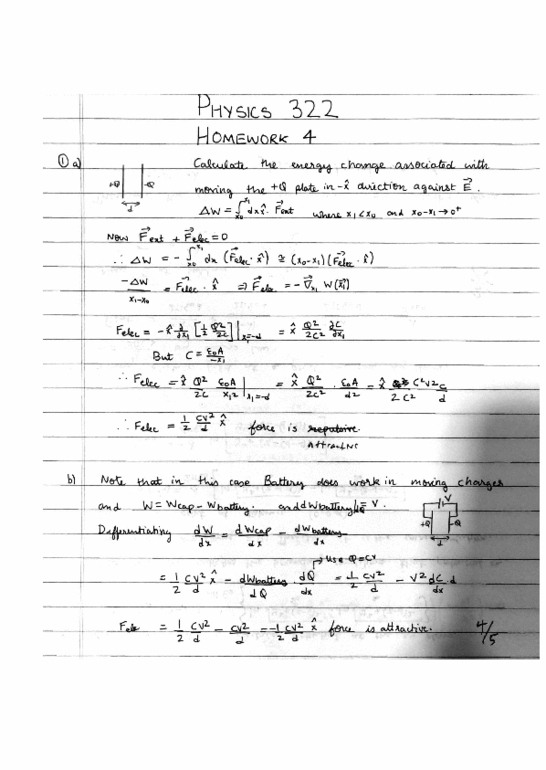 PHYSICS 322
HOMEWORK 4
① a) Calculate the energy change associated with
+Q -Q d
moving the +Q plate in -x̂ direction against E⃗.
ΔW = ∫_{x0}^{x1} dx x̂ · F⃗ext where x1<x0 and x0-x1→0⁺
Now F⃗ext + F⃗elec = 0
∴ ΔW = - ∫_{x0}^{x1} dx (F⃗elec · x̂) ≅ (x0-x1)(F⃗elec · x̂)
-ΔW/(x1-x0) = F⃗elec · x̂ ⇒ F⃗elec = -∇⃗x1 W(x⃗1)
Felec = -x̂ ∂/∂x1 [1/2 Q²/2C]|x1=-d = x̂ Q²/2C² ∂C/∂x1
But C = ε0A/-x1
∴ Felec = x̂ Q²/2C ε0A/x1² |x1=-d = x̂ Q²/2C² · ε0A/d² = x̂ C²V²C/2C² d
∴ Felec = 1/2 CV²/d x̂ force is repulsive.
Attractive
b) Note that in this case Battery does work in moving charges
and W = Wcap - Wbattery. and dWbattery/dQ = V.
V +Q -Q d
Differentiating dW/dx = dWcap/dx - dWbattery/dx
→ Use Q=CV
= 1/2 CV²/d x̂ - dWbattery/dQ · dQ/dx = 1/2 CV²/d - V² dC/dx d
Felec = 1/2 CV²/d - CV²/d = -1/2 CV²/d x̂ force is attractive.
4/5